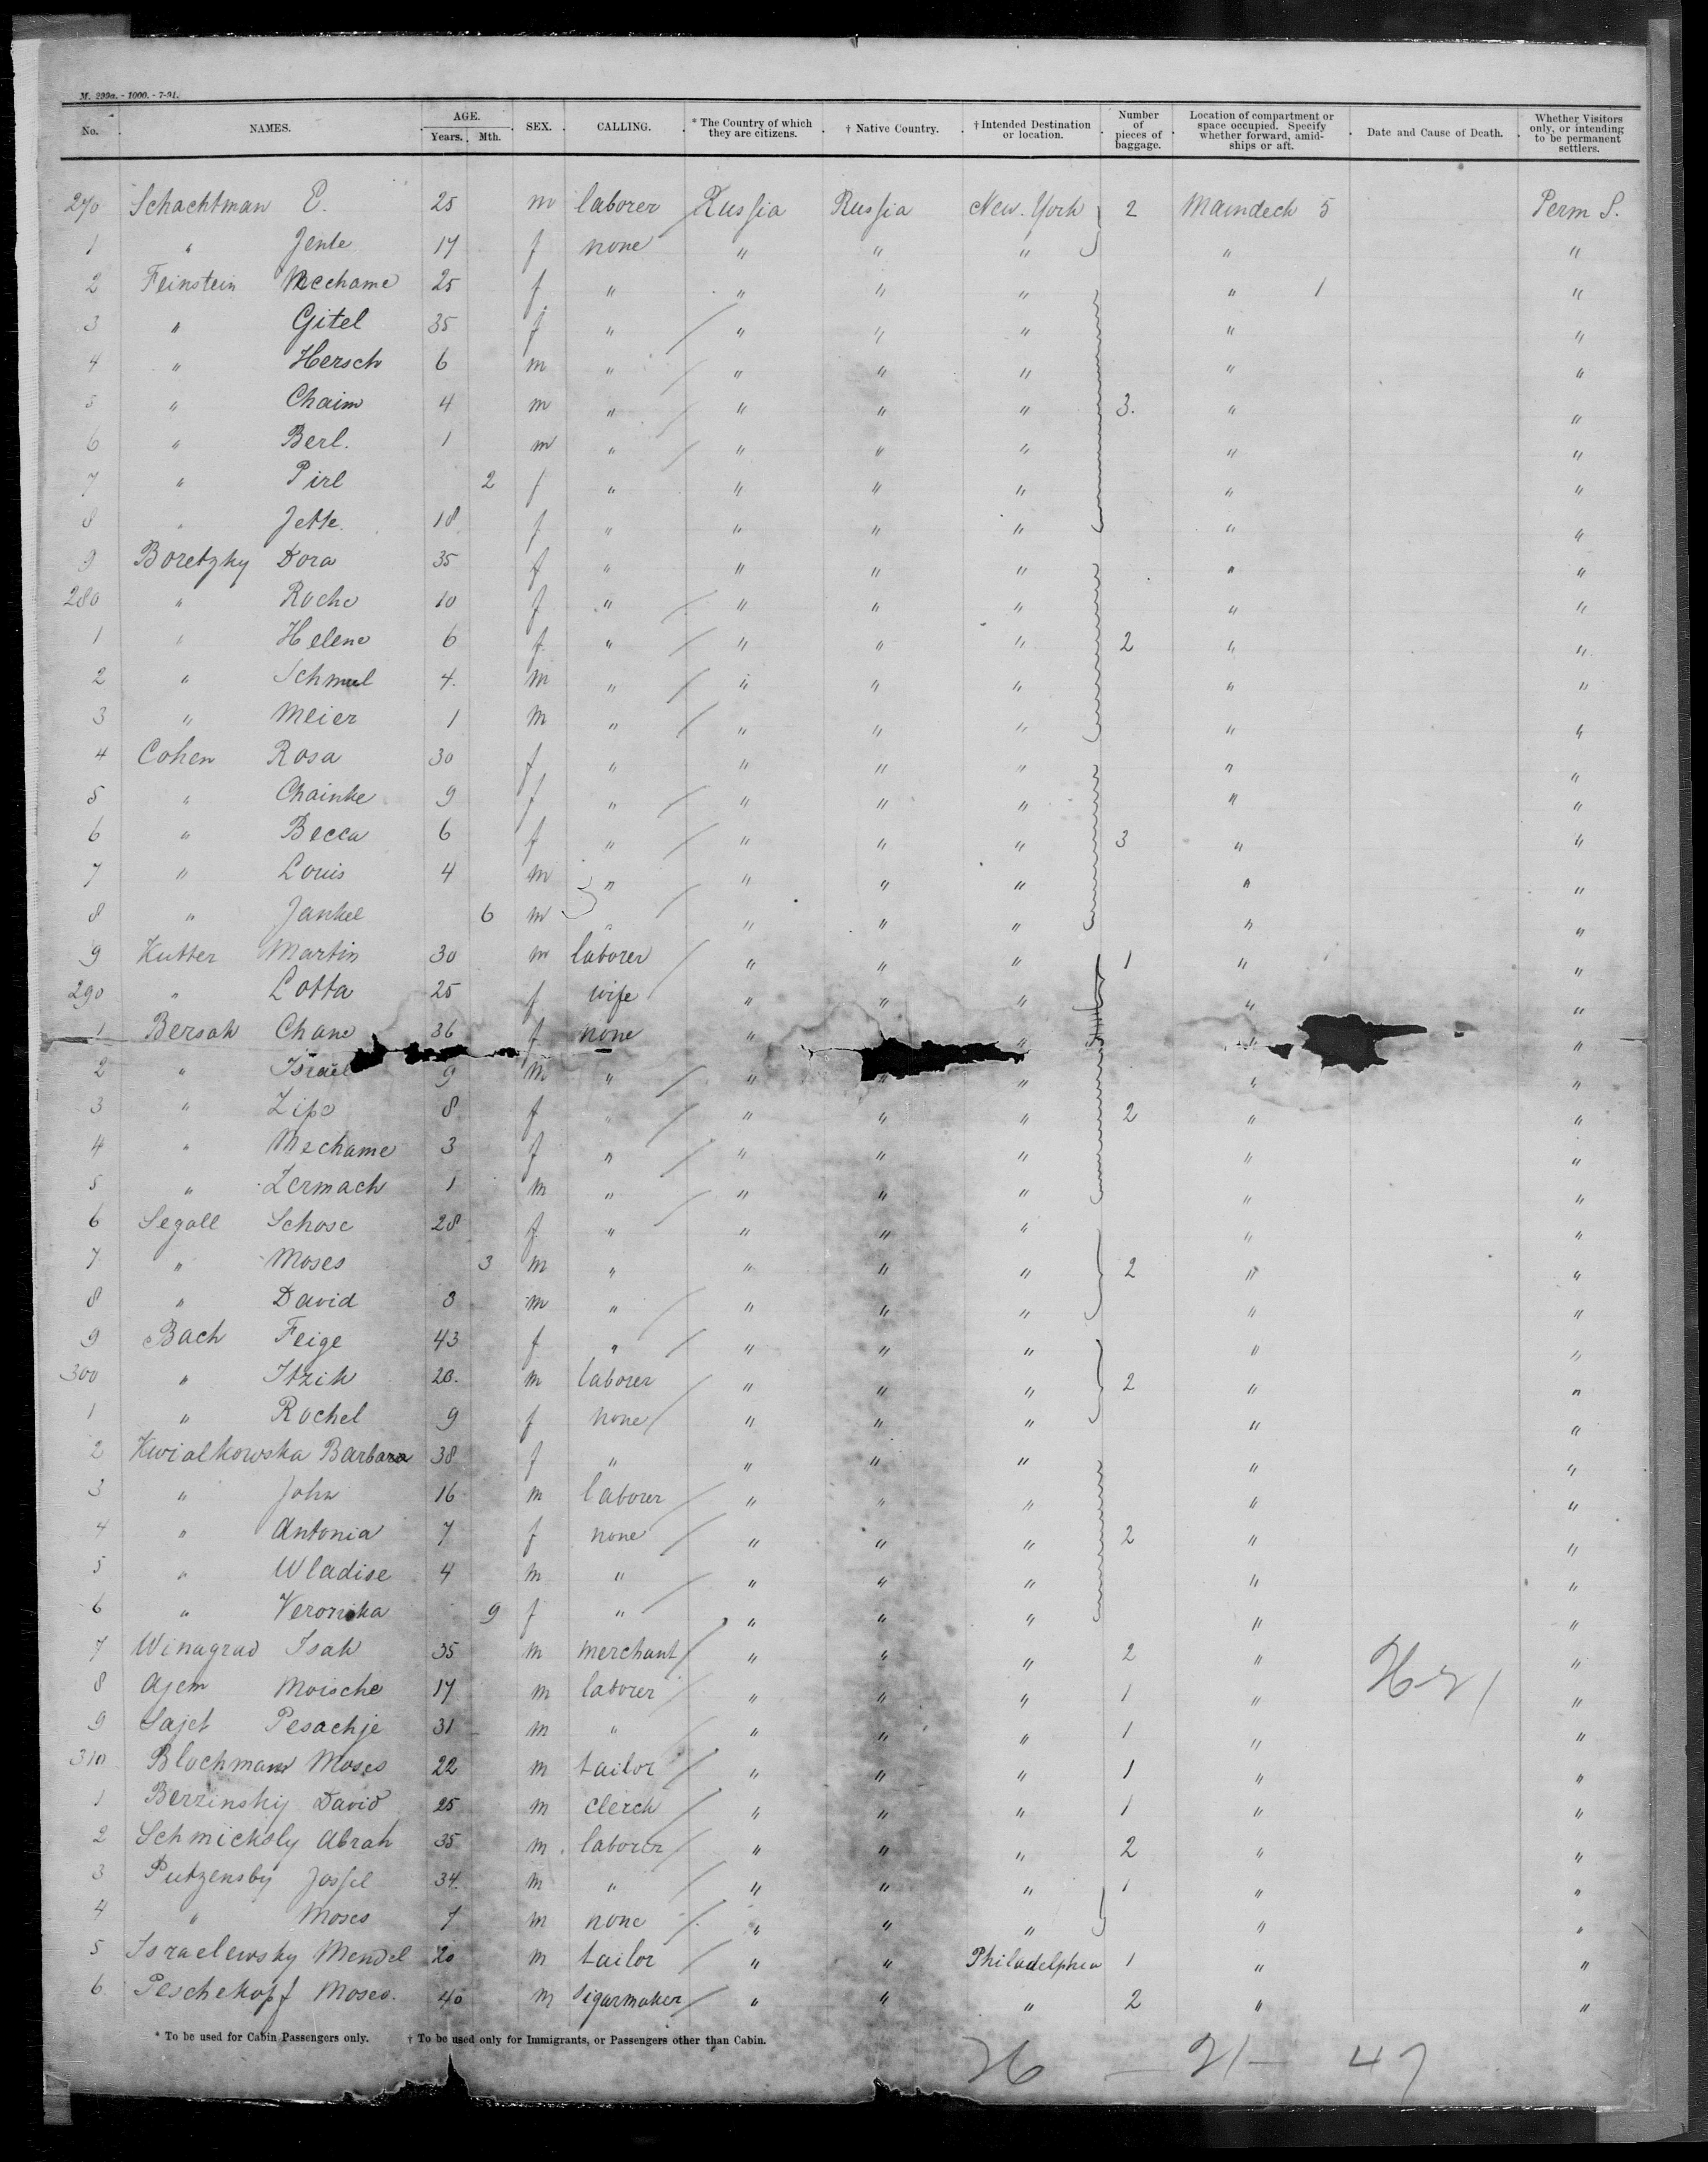 M. 299a. - 1000. - 7-91.
No. NAMES. AGE. Years. Mth. SEX. CALLING. * The Country of which they are citizens. † Native Country. † Intended Destination or location. Number of pieces of baggage. Location of compartment or space occupied. Specify whether forward, amidships or aft. Date and Cause of Death. Whether Visitors only, or intending to be permanent settlers.
270 Schachtman E. 25 m laborer Russia Russia New. York 2 Maindeck 5 Perm S.
1 " Jente 17 f none " " " " "
2 Feinstein Mechame 25 f " " " " " 1 "
3 " Gitel 35 f " " " " " "
4 " Hersch 6 m " " " " " "
5 " Chaim 4 m " " " " 3. " "
6 " Berl. 1 m " " " " " "
7 " Pirl 2 f " " " " " "
8 " Jette. 18 f " " " " " "
9 Boretzky Dora 35 f " " " " " "
280 " Roche 10 f " " " " " "
1 " Helene 6 f " " " " 2 " "
2 " Schmul 4. m " " " " " "
3 " Meier 1 m " " " " " "
4 Cohen Rosa 30 f " " " " " "
5 " Chainke 9 f " " " " " "
6 " Becca 6 f " " " " 3 " "
7 " Louis 4 m " " " " " "
8 " Jankel 6 m " " " " " "
9 Kutter Martin 30 m laborer " " " 1 " "
290 " Lotta 25 f wife " " " " "
1 Bersak Chane 36 f none " " " "
2 " Israel 9 m " " " " " "
3 " Zipe 8 f " " " " 2 " "
4 " Mechame 3 f " " " " " "
5 " Zermach 1 m " " " " " "
6 Segall Schose 28 f " " " " " "
7 " Moses 3 m " " " " 2 " "
8 " David 3 m " " " " " "
9 Bach Feige 43 f " " " " " "
300 " Itzik 20. m laborer " " " 2 " "
1 " Rochel 9 f none " " " " "
2 Kwialkowska Barbara 38 f " " " " " "
3 " John 16 m laborer " " " " "
4 " Antonia 7 f none " " " 2 " "
5 " Wladise 4 m " " " " " "
6 " Veronika 9 f " " " " " "
7 Winagrad Isak 35 m merchant " " " 2 " "
8 Ajem Moische 17 m laborer " " " 1 " "
9 Sajet Pesachje 31 m " " " " 1 " "
310 Blochmann Moses 22 m tailor " " " 1 " "
1 Berzinskij David 25 m clerck " " " 1 " "
2 Schmicksly Abrah 35 m laborer " " " 2 " "
3 Putzensby Jossel 34 m " " " " 1 " "
4 " Moses 7 m none " " " " "
5 Israelewsky Mendel 20 m tailor " " Philadelphia 1 " "
6 Peschekopf Moses. 40 m sigarmaker " " " 2 " "
* To be used for Cabin Passengers only. † To be used only for Immigrants, or Passengers other than Cabin.
26 — 21 — 47